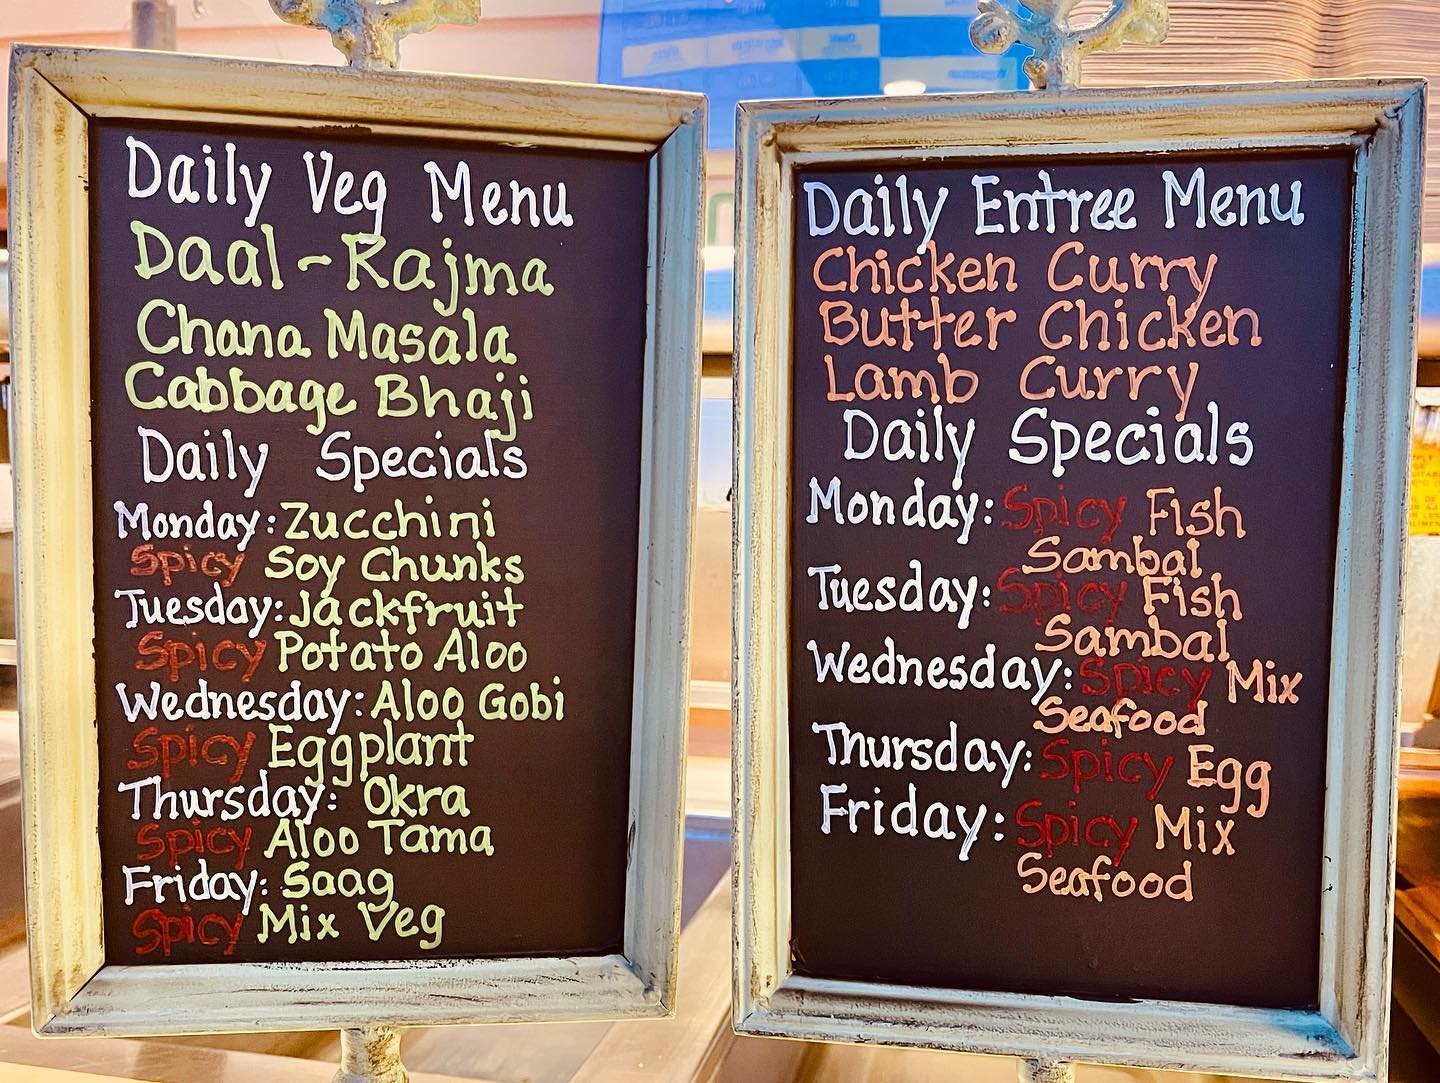 Daily Veg Menu
Daal ~ Rajma
Chana Masala
Cabbage Bhaji
Daily Specials
Monday: Zucchini
Spicy Soy Chunks
Tuesday: Jackfruit
Spicy Potato Aloo
Wednesday: Aloo Gobi
Spicy Eggplant
Thursday: Okra
Spicy Aloo Tama
Friday: Saag
Spicy Mix Veg
Daily Entree Menu
Chicken Curry
Butter Chicken
Lamb Curry
Daily Specials
Monday: Spicy Fish
Sambal
Tuesday: Spicy Fish
Sambal
Wednesday: Spicy Mix
Seafood
Thursday: Spicy Egg
Friday: Spicy Mix
Seafood